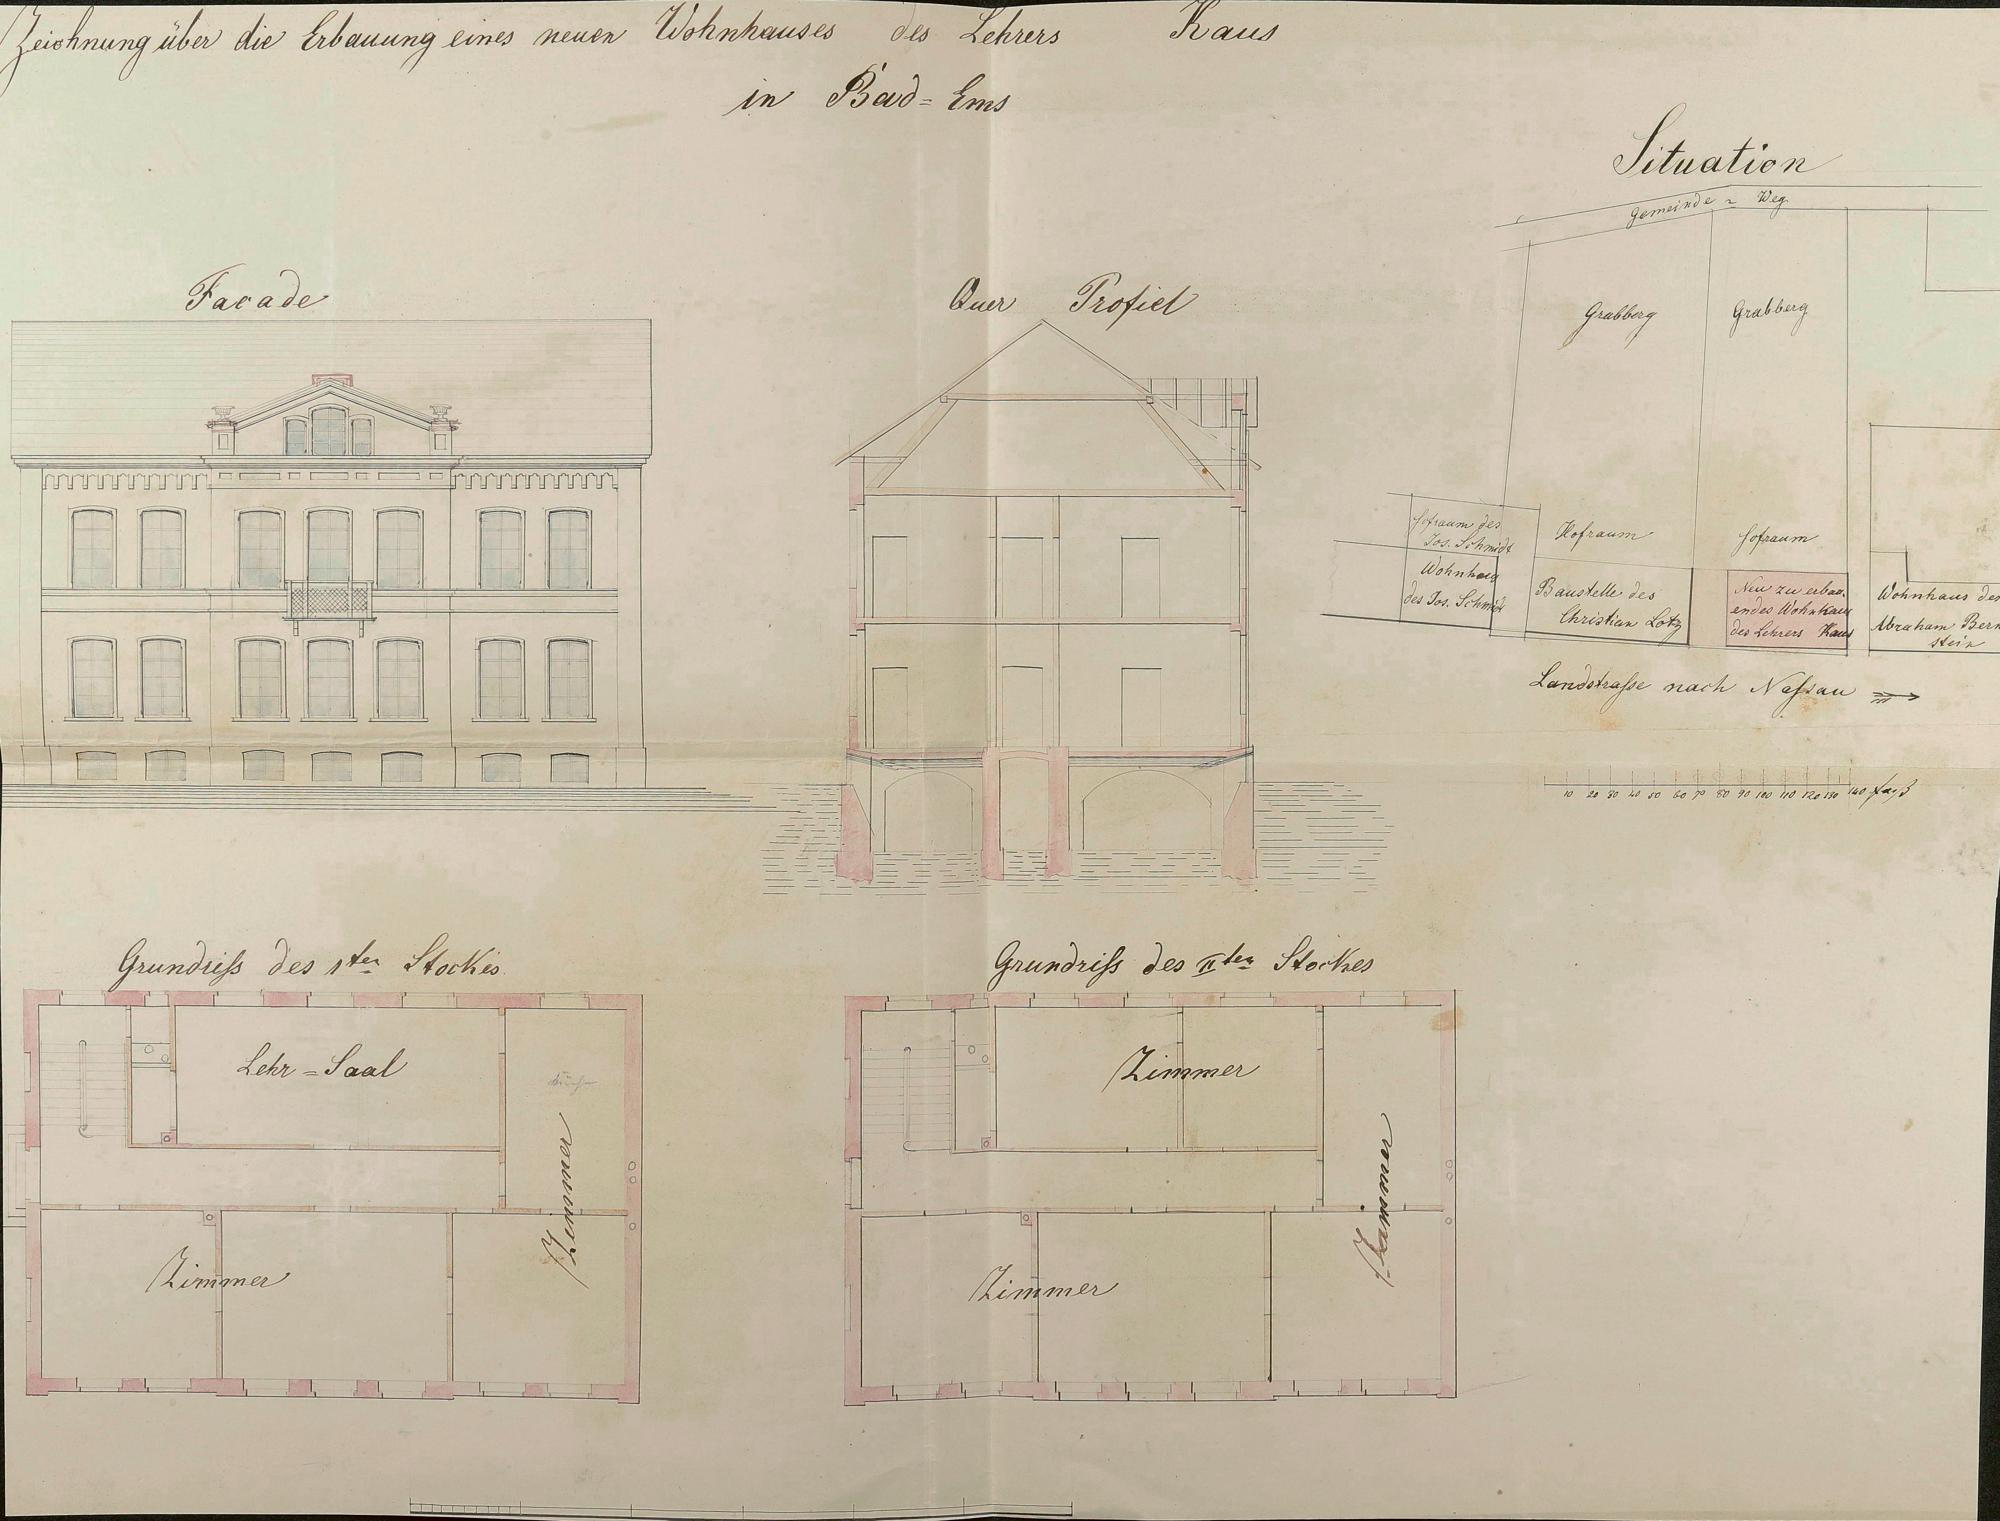 Zeichnung über die Erbauung eines neuen Wohnhauses des Lehrers Kaus
in Bad=Ems
Situation
Gemeinde = Weg
Facade
Quer Profiel
Grabberg
Grabberg
Hofraum des
Jos. Schmidt
Hofraum
Hofraum
Wohnhaus
des Jos. Schmidt
Baustelle des
Christian Lotz
Neu zu erbau-
endes Wohnhaus
des Lehrers Kaus
Wohnhaus des
Abraham Bern
stein
Landstraße nach Naßau
10 20 30 40 50 60 70 80 90 100 110 120 130 140 Fuß
Grundriß des 1ten Stockes
Grundriß des IIten Stockes
Lehr=Saal
Küche
Zimmer
Zimmer
Zimmer
Zimmer
Zimmer